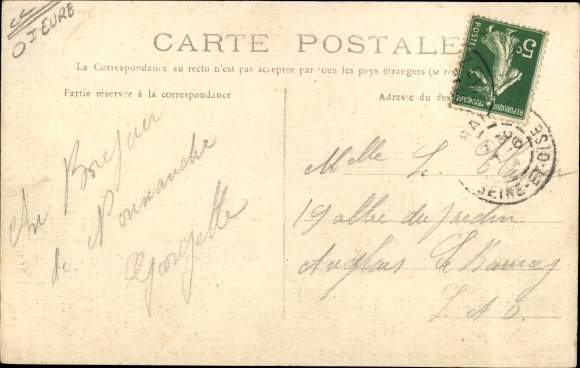 D I EURE
CARTE POSTALE
La Correspondance au recto n'est pas acceptée par tous les pays étrangers (se
Partie réservée à la correspondance
Adresse du des
5c
POSTES
SEINE-&-OISE
Un Bonjour
de Normandie
Georgette
Melle L.
19 allée du Jardin
Anglais Le Raincy
S.&O.